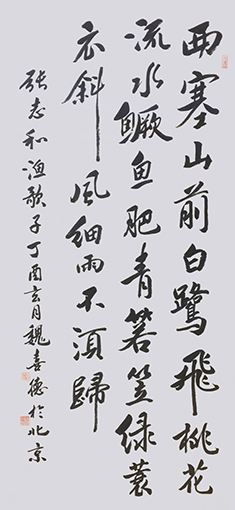 西塞山前白鹭飛桃花
流水鳜鱼肥青箬笠绿蓑
衣斜風细雨不須歸
張志和渔歌子丁酉玄月魏喜德於北京